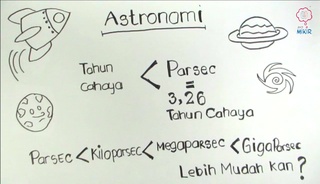 Astronomi
Tahun Cahaya < Parsec
=
3,26
Tahun Cahaya
Parsec < Kiloparsec < Megaparsec < GigaParsec
Lebih Mudah Kan?